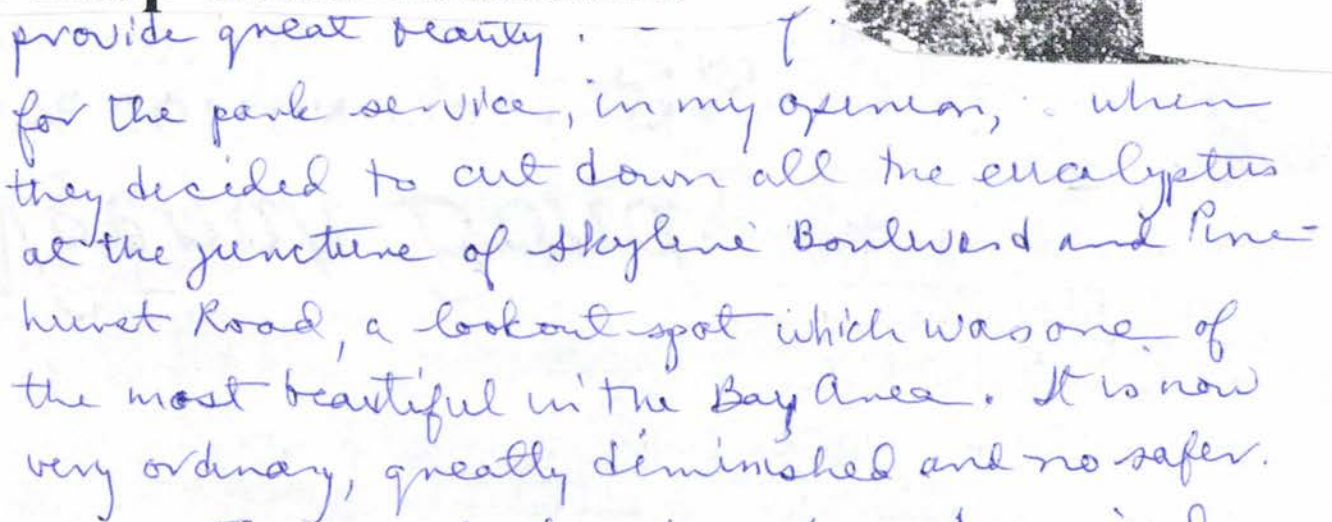 provide great beauty.
for the park service, in my opinion, when
they decided to cut down all the eucalyptus
at the juncture of Skyline Boulevard and Pine-
hurst Road, a lookout spot which was one of
the most beautiful in the Bay Area. It is now
very ordinary, greatly diminished and no safer.